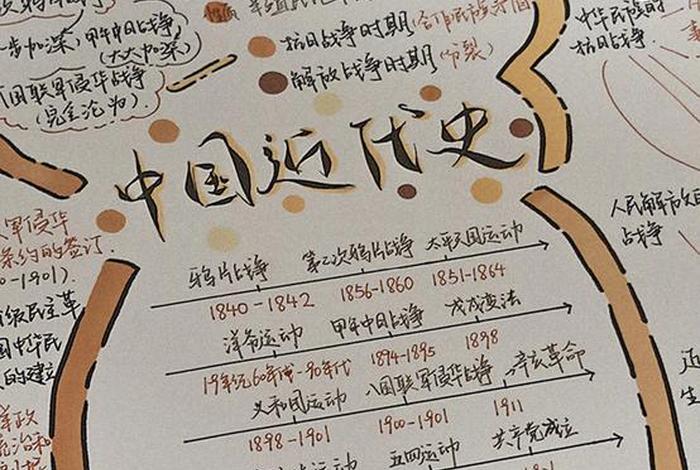 抗日战争时期(合作民族矛盾)
步加深),甲午中日战争
(大大加深)
解放战争时期(分裂)
国联军侵华战争
(完全沦为).
中华民族的
抗日战争.
中国近代史
人民解放
战争
军侵华
条约的签订.
-1901).
级民主革
国中华民
的建立
鸦片战争 第二次鸦片战争 太平天国运动
1840-1842 1856-1860 1851-1864
洋务运动 甲午中日战争 戊戌变法
19年纪60年代-90年代 1894-1895 1898
义和团运动 八国联军侵华战争 辛亥革命
1898-1901 1900-1901 1911
五四运动 共产党成立